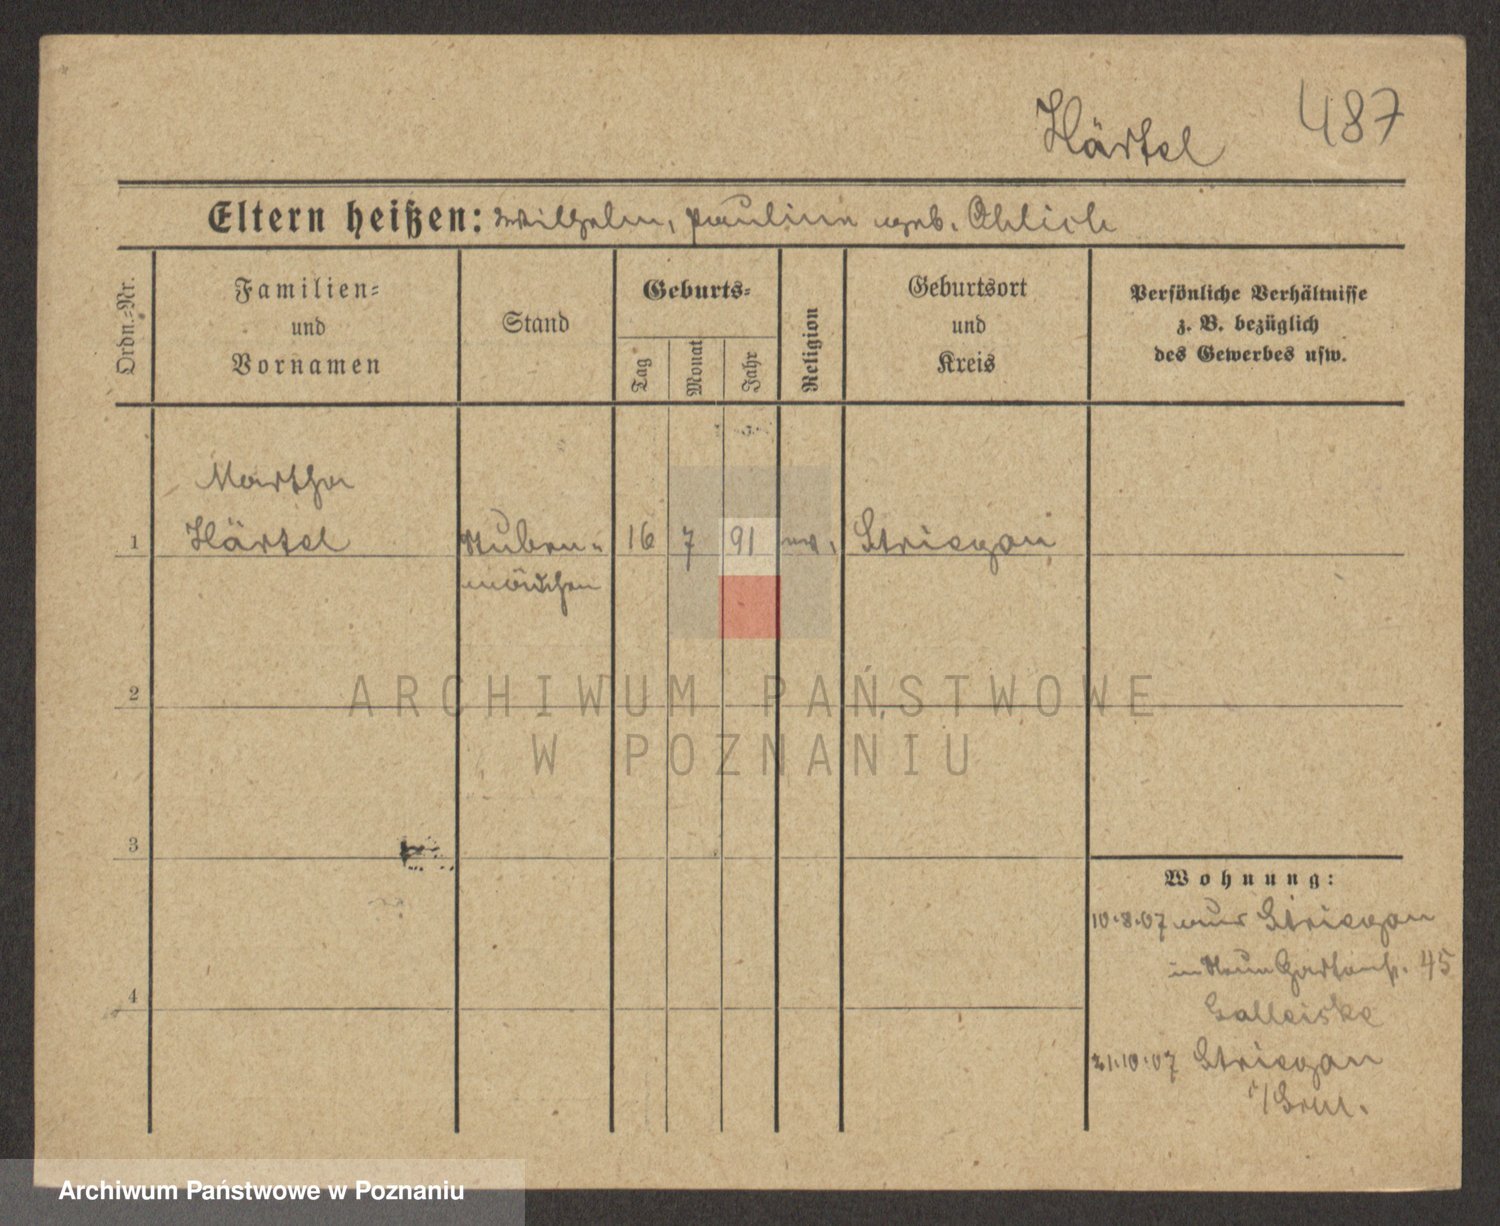 Härtel 487
Eltern heißen: Wilhelm, Pauline geb. Ahlich
Ordn.-Nr.
Familien-
und
Vornamen
Stand
Geburts-
Tag
Monat
Jahr
Religion
Geburtsort
und
Kreis
Persönliche Verhältnisse
z. B. bezüglich
des Gewerbes usw.
Martha
1 Härtel Stuben- 16 7 91 ev. Striegau
mädchen
2
ARCHIWUM PAŃSTWOWE
W POZNANIU
3
Wohnung:
10.8.07 aus Striegau
Gartenstr. 45
4
21.10.07 Striegau
Archiwum Państwowe w Poznaniu